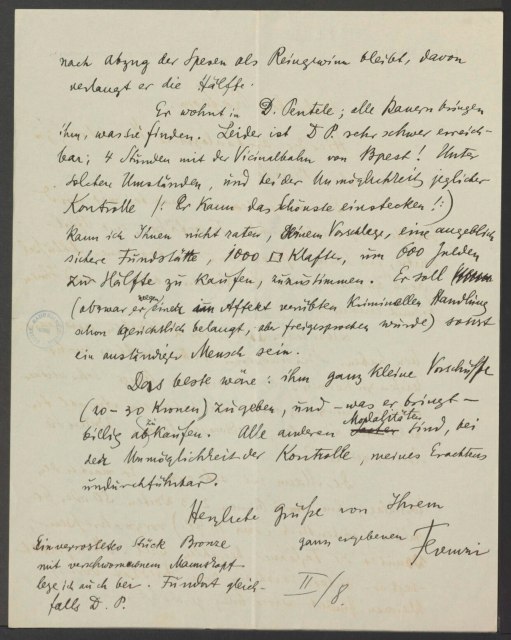 nach Abzug der Spesen als Reingewinn bleibt, davon
verlangt er die Hälfte.
Er wohnt in D. Pentele; alle Bauern bringen
ihm, was sie finden. Leider ist D P. sehr schwer erreich-
bar; 4 Stunden mit der Vicinalbahn von Bpest! Unter
solchen Umständen, und bei der Unmöglichkeit jeglicher
Kontrolle /: Er kann das Schönste einstecken! :)
kann ich Ihnen nicht raten, seinem Vorschlage, eine angeblich
sichere Fundstätte, 1000 □ Klafter, um 600 Gulden
zur Hälfte zu kaufen, zuzustimmen. Er soll
(obzwar er wegen einer im Affekt verübten kriminellen Handlung
schon gerichtlich belangt, aber freigesprochen wurde) sonst
ein anständiger Mensch sein.
Das beste wäre: ihm ganz kleine Vorschüsse
(20-30 Kronen) zu geben, und – was er bringt –
billig abzukaufen. Alle anderen Modalitäten sind, bei
der Unmöglichkeit der Kontrolle, meines Erachtens
undurchführbar.
Herzliche Grüße von Ihrem
ganz ergebenen
Ein verrostetes Stück Bronze
mit verschwommenem Mannskopf
lege ich auch bei. Fundort gleich-
falls D. P.
II/8.